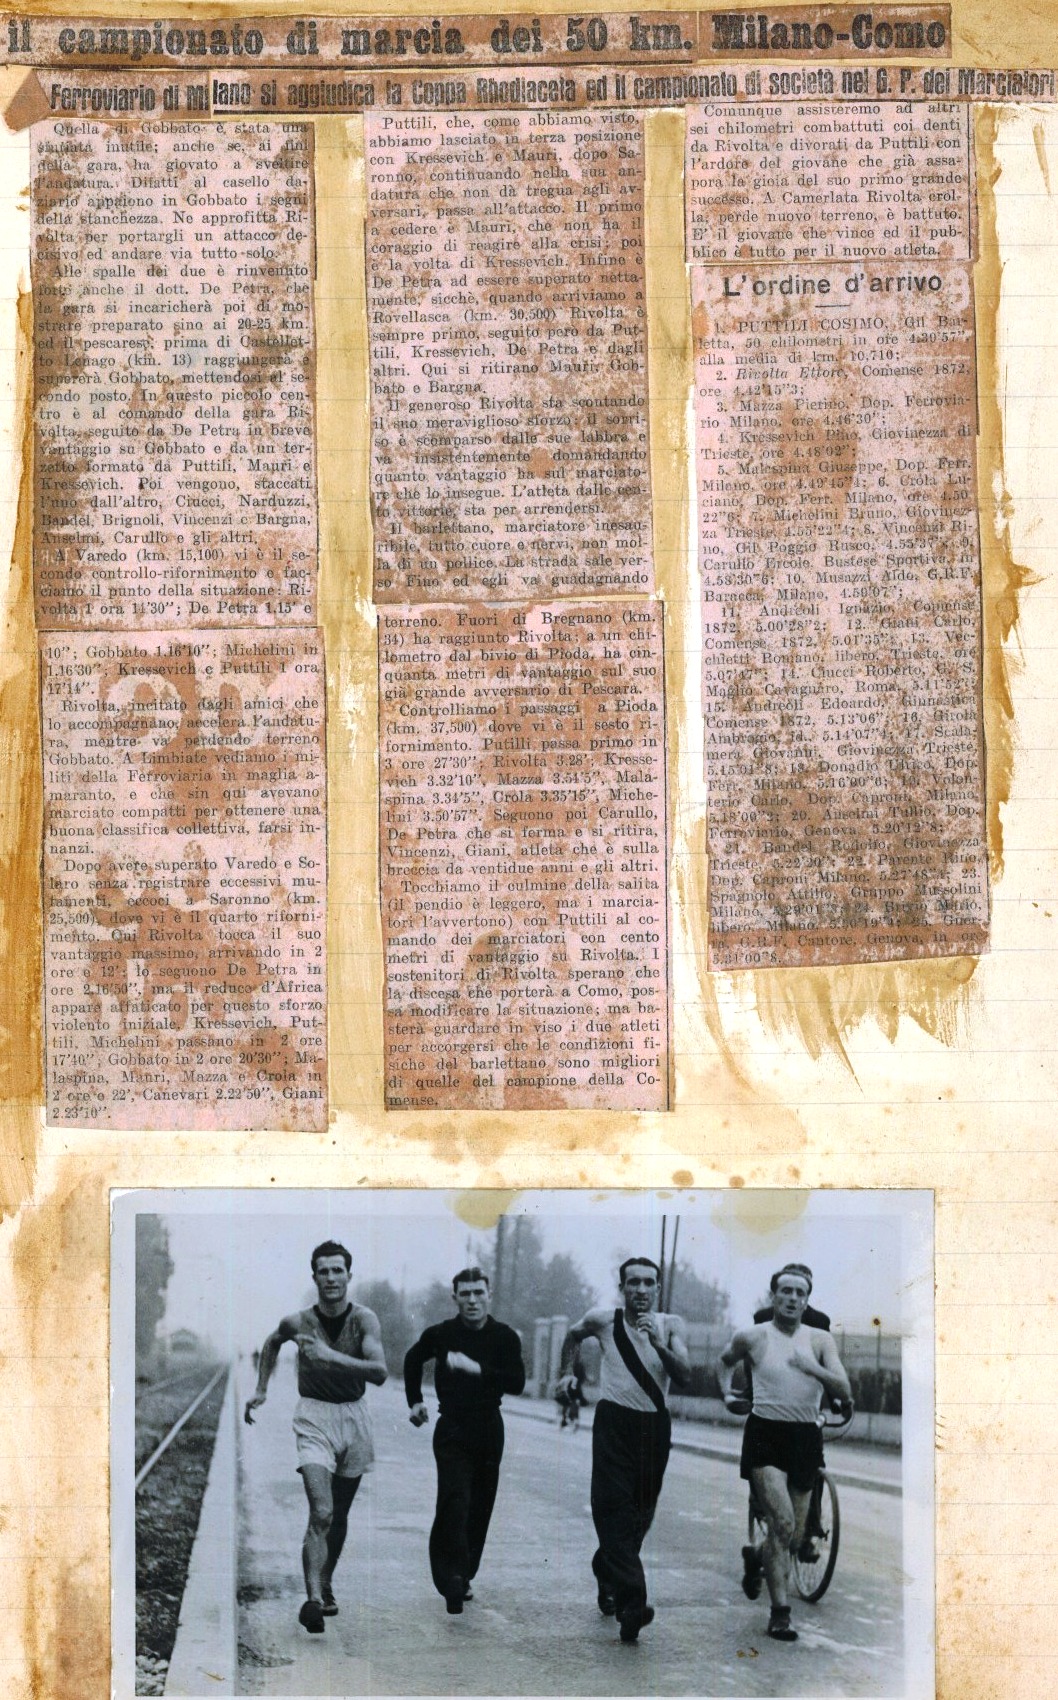 il campionato di marcia dei 50 km. Milano-Como
Ferroviario di Milano si aggiudica la Coppa Rhodiaceta ed il campionato di società nel G. P. dei Marciatori
Quella di Gobbato è stata una
sfuriata inutile; anche se, ai fini
della gara, ha giovato a sveltire
l'andatura. Difatti al casello da-
ziario appaiono in Gobbato i segni
della stanchezza. Ne approfitta Ri-
volta per portargli un attacco de-
cisivo ed andare via tutto solo.
Alle spalle dei due è rinvenuto
forte anche il dott. De Petra, che
la gara si incaricherà poi di mo-
strare preparato sino ai 20-25 km.
ed il pescarese, prima di Castellet-
to Lenago (km. 13) raggiungerà e
supererà Gobbato, mettendosi al se-
condo posto. In questo piccolo cen-
tro è al comando della gara Ri-
volta, seguito da De Petra in breve
vantaggio su Gobbato e da un ter-
zetto formato da Puttili, Mauri e
Kressevich. Poi vengono, staccati
l'uno dall'altro, Ciucci, Narduzzi,
Bandel, Brignoli, Vincenzi e Bargna,
Anselmi, Carullo e gli altri.
A Varedo (km. 15,100) vi è il se-
condo controllo-rifornimento e fac-
ciamo il punto della situazione: Ri-
volta 1 ora 14'30"; De Petra 1.15' e
10"; Gobbato 1.16'10"; Michelini in
1.16'30"; Kressevich e Puttili 1 ora
17'14".
Rivolta, incitato dagli amici che
lo accompagnano, accelera l'andatu-
ra, mentre va perdendo terreno
Gobbato. A Limbiate vediamo i mi-
liti della Ferroviaria in maglia a-
maranto, e che sin qui avevano
marciato compatti per ottenere una
buona classifica collettiva, farsi in-
nanzi.
Dopo avere superato Varedo e So-
laro senza registrare eccessivi mu-
tamenti, eccoci a Saronno (km.
25,500), dove vi è il quarto riforni-
mento. Qui Rivolta tocca il suo
vantaggio massimo, arrivando in 2
ore e 12'; lo seguono De Petra in
ore 2.16'50", ma il reduce d'Africa
appare affaticato per questo sforzo
violento iniziale, Kressevich, Put-
tili, Michelini passano in 2 ore
17'40"; Gobbato in 2 ore 20'30"; Ma-
laspina, Mauri, Mazza e Crola in
2 ore e 22', Canevari 2.22'50", Giani
2.23'10".
Puttili, che, come abbiamo visto,
abbiamo lasciato in terza posizione
con Kressevich e Mauri, dopo Sa-
ronno, continuando nella sua an-
datura che non dà tregua agli av-
versari, passa all'attacco. Il primo
a cedere è Mauri, che non ha il
coraggio di reagire alla crisi; poi
è la volta di Kressevich. Infine è
De Petra ad essere superato netta-
mente, sicchè, quando arriviamo a
Rovellasca (km. 30,500) Rivolta è
sempre primo, seguito però da Put-
tili, Kressevich, De Petra e dagli
altri. Qui si ritirano Mauri, Gob-
bato e Bargna.
Il generoso Rivolta sta scontando
il suo meraviglioso sforzo: il sorri-
so è scomparso dalle sue labbra e
va insistentemente domandando
quanto vantaggio ha sul marciato-
re che lo insegue. L'atleta dalle cen-
to vittorie, sta per arrendersi.
Il barlettano, marciatore inesau-
ribile, tutto cuore e nervi, non mol-
la di un pollice. La strada sale ver-
so Fino ed egli va guadagnando
terreno. Fuori di Bregnano (km.
34) ha raggiunto Rivolta; a un chi-
lometro dal bivio di Pioda, ha cin-
quanta metri di vantaggio sul suo
già grande avversario di Pescara.
Controlliamo i passaggi a Pioda
(km. 37,500) dove vi è il sesto ri-
fornimento. Putilli passa primo in
3 ore 27'30"; Rivolta 3.28'; Kresse-
vich 3.32'10", Mazza 3.54'5", Mala-
spina 3.34'5", Crola 3.35'15", Miche-
lini 3.50'57". Seguono poi Carullo,
De Petra che si ferma e si ritira,
Vincenzi, Giani, atleta che è sulla
breccia da ventidue anni e gli altri.
Tocchiamo il culmine della salita
(il pendio è leggero, ma i marcia-
tori l'avvertono) con Puttili al co-
mando dei marciatori con cento
metri di vantaggio su Rivolta. I
sostenitori di Rivolta sperano che
la discesa che porterà a Como, pos-
sa modificare la situazione; ma ba-
sterà guardare in viso i due atleti
per accorgersi che le condizioni fi-
siche del barlettano sono migliori
di quelle del campione della Co-
mense.
Comunque assisteremo ad altri
sei chilometri combattuti coi denti
da Rivolta e divorati da Puttili con
l'ardore del giovane che già assa-
pora la gioia del suo primo grande
successo. A Camerlata Rivolta crol-
la; perde nuovo terreno, è battuto.
E' il giovane che vince ed il pub-
blico è tutto per il nuovo atleta.
L'ordine d'arrivo
1. PUTTILI COSIMO, Gil Bar-
letta, 50 chilometri in ore 4.39'57",
alla media di km. 10,710;
2. Rivolta Ettore, Comense 1872,
ore 4.42'15"3;
3. Mazza Pierino, Dop. Ferrovia-
rio Milano, ore 4.46'30";
4. Kressevich Plno, Giovinezza di
Trieste, ore 4.48'02";
5. Malespina Giuseppe, Dop. Ferr.
Milano, ore 4.49'45"4; 6. Crola Lu-
ciano, Dop. Ferr. Milano, ore 4.50
22"6; 7. Michelini Bruno, Giovinez-
za Trieste, 4.55'22"4; 8. Vincenzi Ri-
no, Gil Poggio Rusco, 4.55'37"; 9.
Carullo Ercole, Bustese Sportiva, in
4.58'30"6; 10. Musazzi Aldo, G.R.F.
Baracca, Milano, 4.59'07";
11. Andreoli Ignazio, Comense
1872, 5.00'28"2; 12. Giani Carlo,
Comense 1872, 5.01'35"; 13. Vec-
chietti Romano, libero, Trieste, ore
5.07'47"; 14. Ciucci Roberto, G. S.
Maglio Cavagnaro, Roma, 5.11'52";
15. Andreoli Edoardo, Ginnastica
Comense 1872, 5.13'06"; 16. Girola
Ambrogio, id., 5.14'07"4; 17. Scala-
mera Giovanni, Giovinezza Trieste,
5.15'01"8; 18. Donadio Ulrico, Dop.
Ferr. Milano, 5.16'00"6; 19. Volon-
terio Carlo, Dop. Caproni, Milano,
5.18'00"2; 20. Anselmi Tullio, Dop.
Ferroviario, Genova, 5.20'12"8;
21. Bandel Rodolfo, Giovinezza
Trieste, 5.22'20"; 22. Parente Rino,
Dop. Caproni Milano, 5.27'48"4; 23.
Spagnolo Attilio, Gruppo Mussolini
Milano, 5.29'01"8; 24. Mario,
libero, Milano, 5.30'19"4; 25. Guer-
ra, G.R.F. Cantore, Genova, in ore
5.31'00"8.